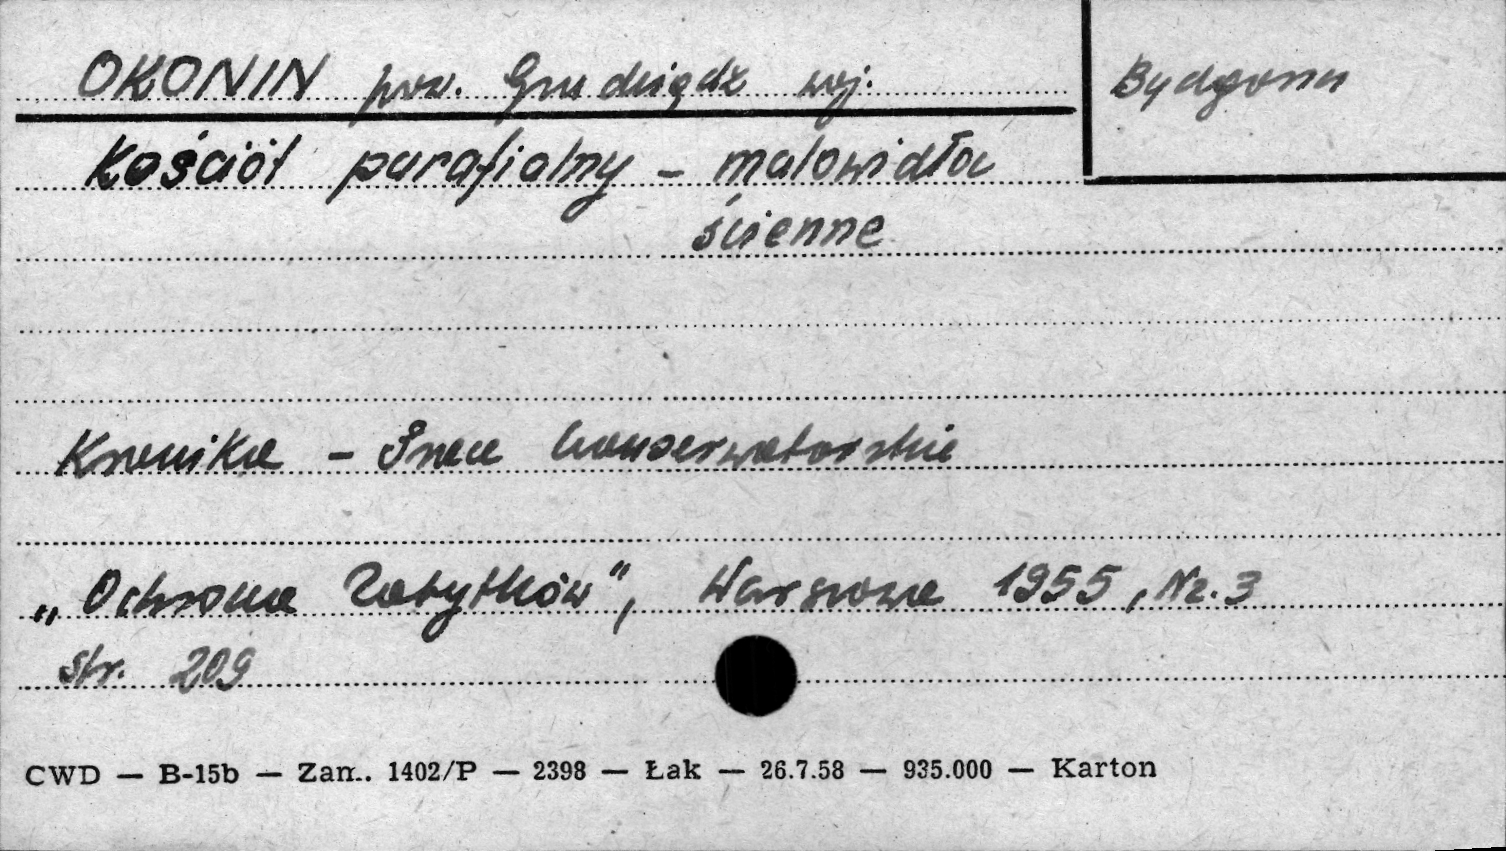 OKONIN pow. Grudziądz woj. Bydgoszcz
Kościół parafialny – malowidła
ścienne
Kronika – Prace konserwatorskie
„Ochrona Zabytków", Warszawa 1955, Nr. 3
str. 209
CWD — B-15b — Zam. 1402/P — 2398 — Łak — 26.7.58 — 935.000 — Karton